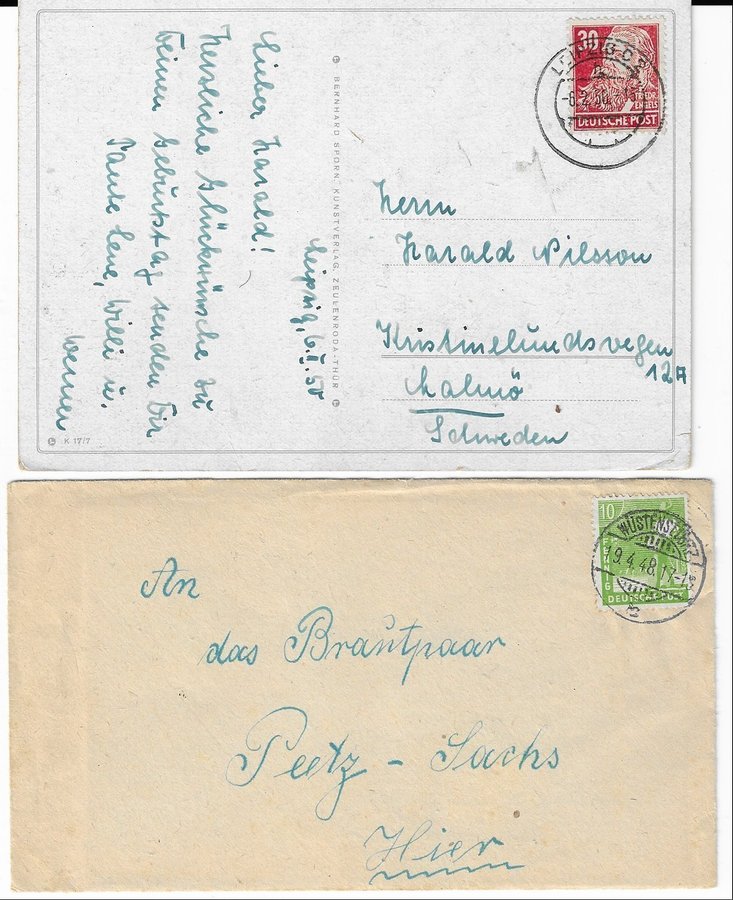 Leipzig, 6.II.50
Lieber Harald!
Herzliche Glückwünsche zu
Deinen Geburtstag senden Dir
Tante Lene, Willi u.
Werner
BERNHARD SPORN, KUNSTVERLAG, ZEULENRODA-THÜR
K 17/7
30
FRIEDR.
ENGELS
DEUTSCHE POST
LEIPZIG C 2
Herrn
Harald Nilsson
Kristinelundsvegen
12A
Malmö
Schweden
10
PFENNIG
DEUTSCHE POST
9.4.48.17-18
An
das Brautpaar
Peetz - Sachs
Hier